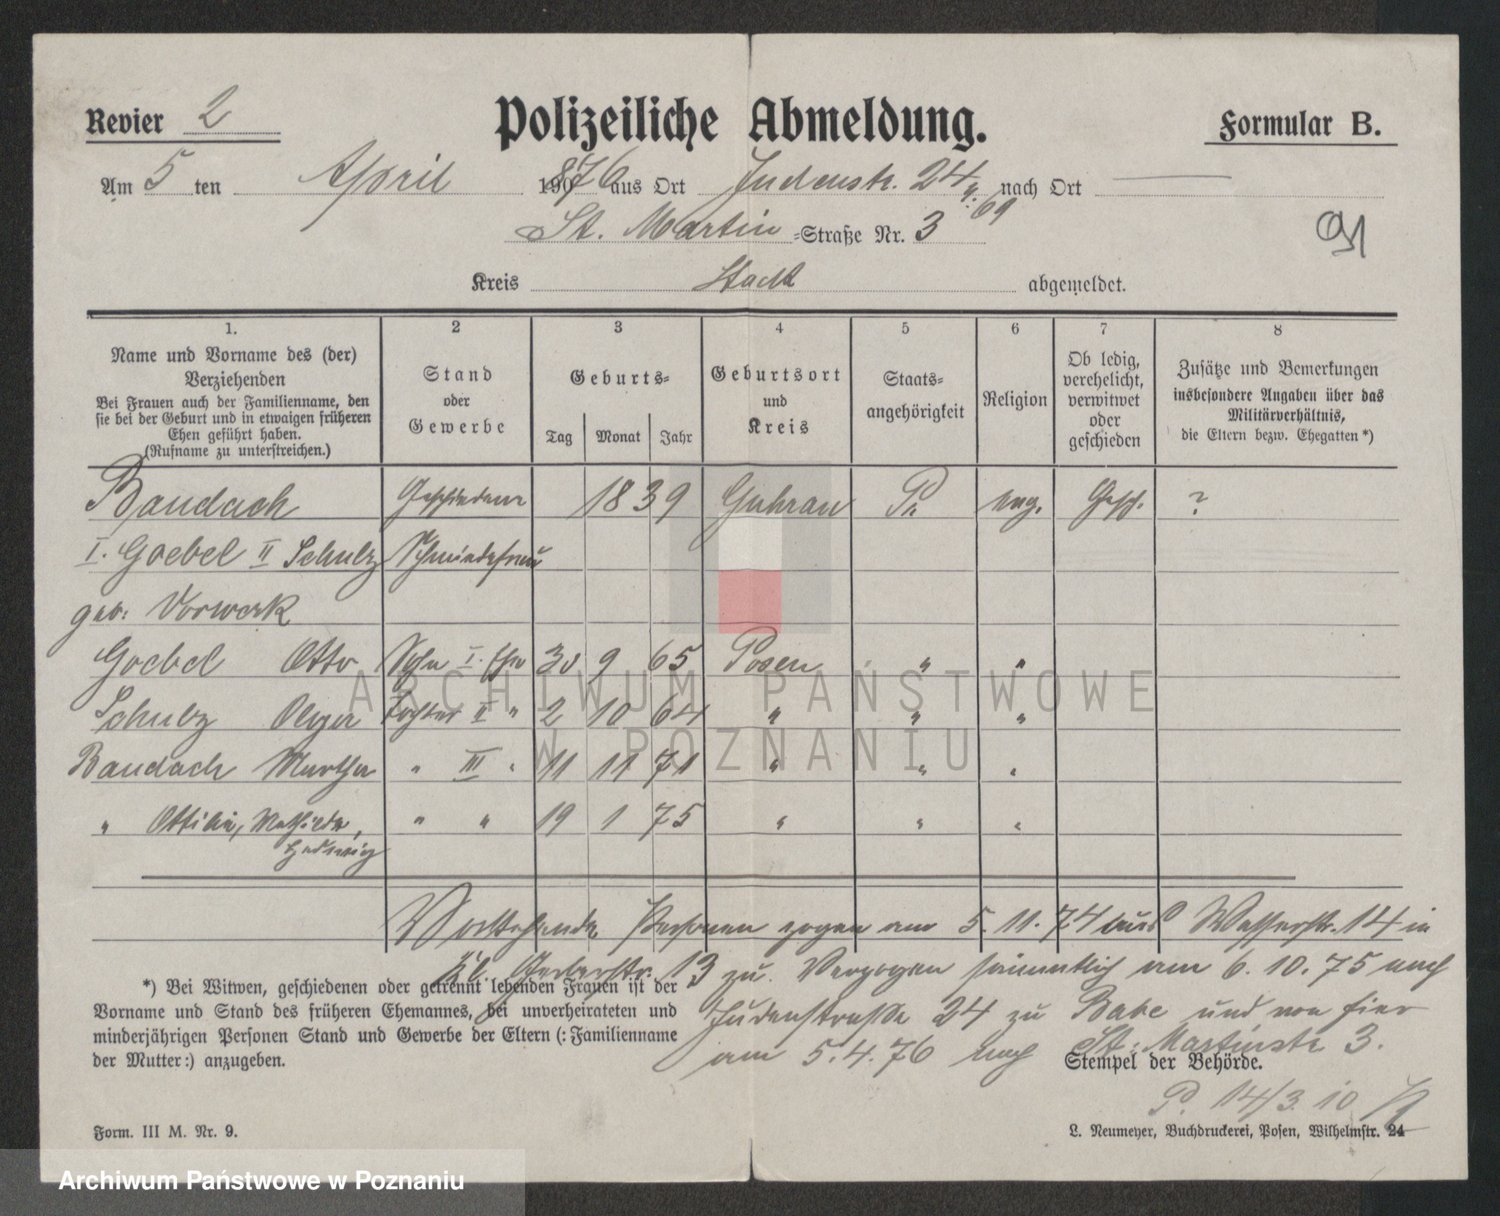 Revier 2
Polizeiliche Abmeldung.
Formular B.
Am 5 ten April 1876 aus Ort Judenstr. 24 nach Ort
69
St. Martin -Straße Nr. 3
91
Kreis Stadt abgemeldet.
1.
Name und Vorname des (der)
Verziehenden
Bei Frauen auch der Familienname, den
sie bei der Geburt und in etwaigen früheren
Ehen geführt haben.
(Rufname zu unterstreichen.)
2
Stand
oder
Gewerbe
3
Geburts-
Tag Monat Jahr
4
Geburtsort
und
Kreis
5
Staats-
angehörigkeit
6
Religion
7
Ob ledig,
verehelicht,
verwitwet
oder
geschieden
8
Zusätze und Bemerkungen
insbesondere Angaben über das
Militärverhältnis,
die Eltern bezw. Ehegatten *)
Baudach Geschiedene 1839 Guhrau Pr. evg. Gesch. ?
I. Goebel II Schulz Schmiedefrau
geb. Vorwerk
Goebel Otto Sohn I. Ehe 30 9 65 Posen " "
Schulz Olga Tochter II " 2 10 64 " " "
Baudach Martha " III " 11 11 71 " " "
" Ottilie, Mathilde, " " 19 1 75 " " "
Hedwig
Vorstehende Personen zogen am 5.11.74 aus Wasserstr. 14 in
Kl. Gerberstr. 13 zu. Verzogen sämmtlich am 6.10.75 nach
Judenstraße 24 zu Babe und von hier
am 5.4.76 nach St. Martinstr 3.
*) Bei Witwen, geschiedenen oder getrennt lebenden Frauen ist der
Vorname und Stand des früheren Ehemannes, bei unverheirateten und
minderjährigen Personen Stand und Gewerbe der Eltern (: Familienname
der Mutter:) anzugeben.
Stempel der Behörde.
P. 14/3.10
Form. III M. Nr. 9.
L. Neumeyer, Buchdruckerei, Posen, Wilhelmstr. 24
ARCHIWUM PAŃSTWOWE
W POZNANIU
Archiwum Państwowe w Poznaniu